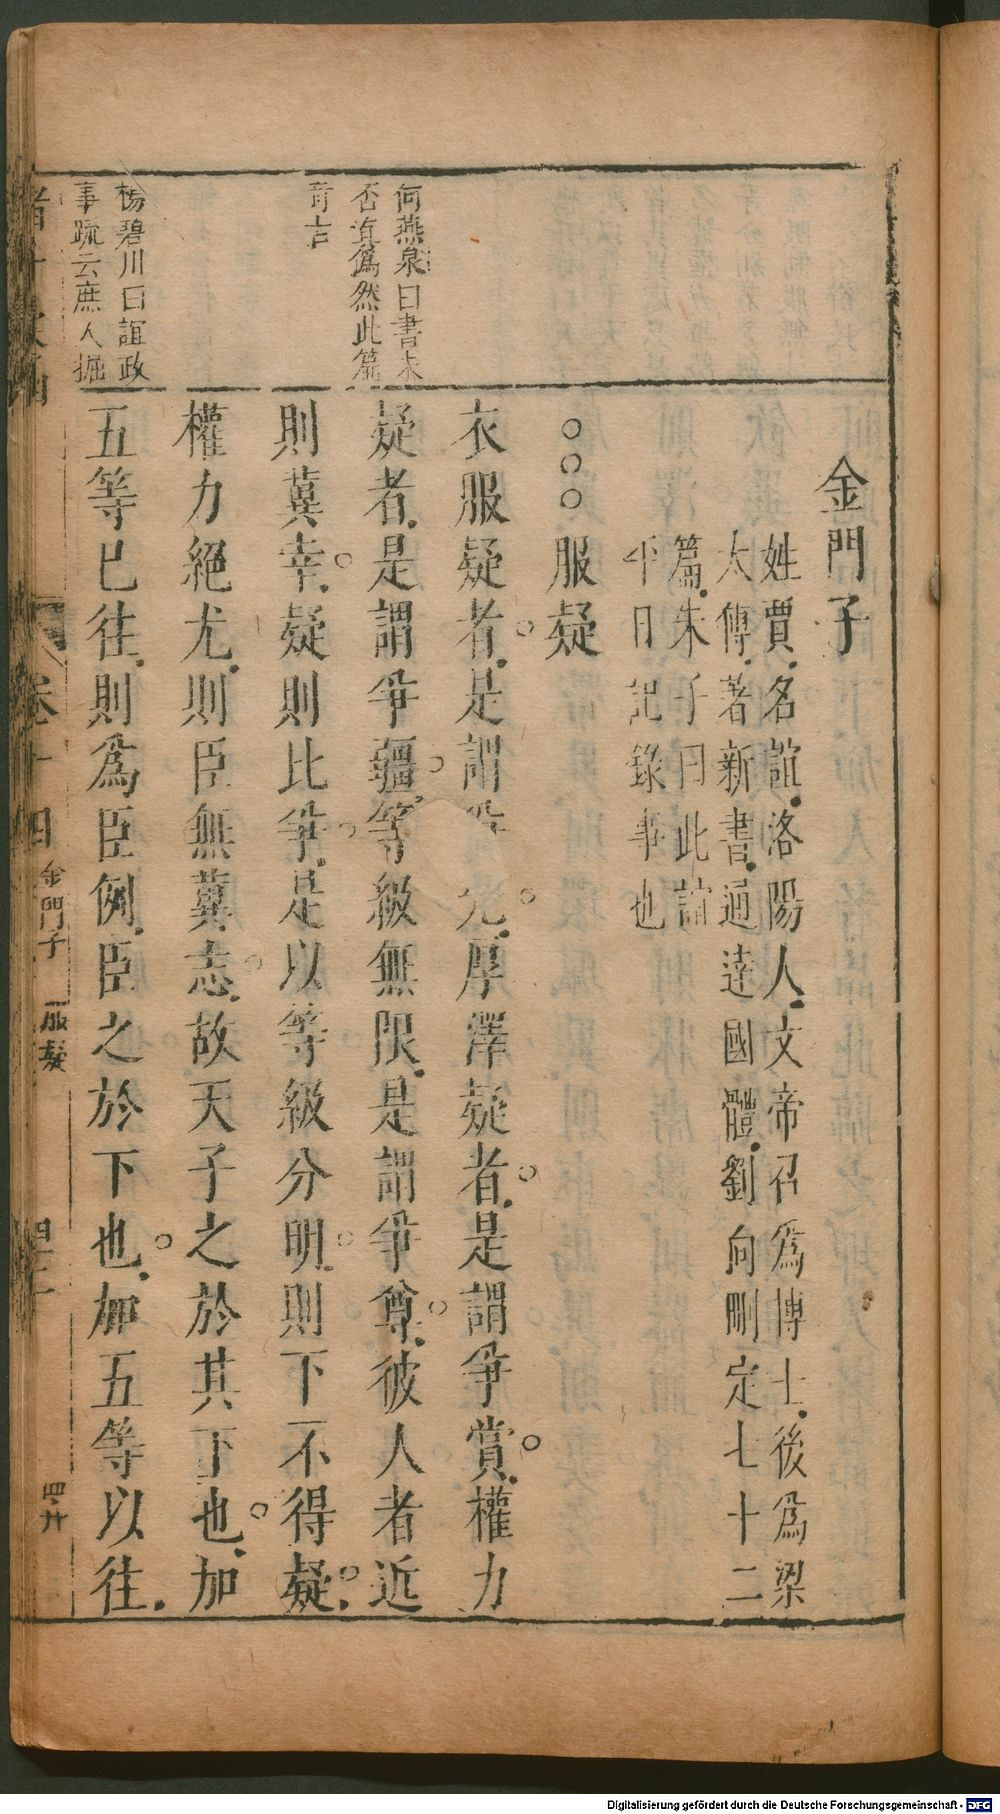 金門子
姓賈名誼洛陽人文帝召爲博士後爲梁
太傅著新書通達國體劉向刪定七十二
篇朱子曰此誼
平日記錄事也
○○○服疑
衣服疑者是謂爭先厚澤疑者是謂爭賞權力
疑者是謂爭彊等級無限是謂爭尊彼人者近
則冀幸疑則比爭是以等級分明則下不得疑
權力絕尤則臣無冀志故天子之於其下也加
五等已往則爲臣例臣之於下也加五等以往
何燕泉曰書未
否眞僞然此篇
楊碧川曰誼政
事疏云庶人掘
卷十四
金門子
服疑
Digitalisierung gefördert durch die Deutsche Forschungsgemeinschaft - DFG